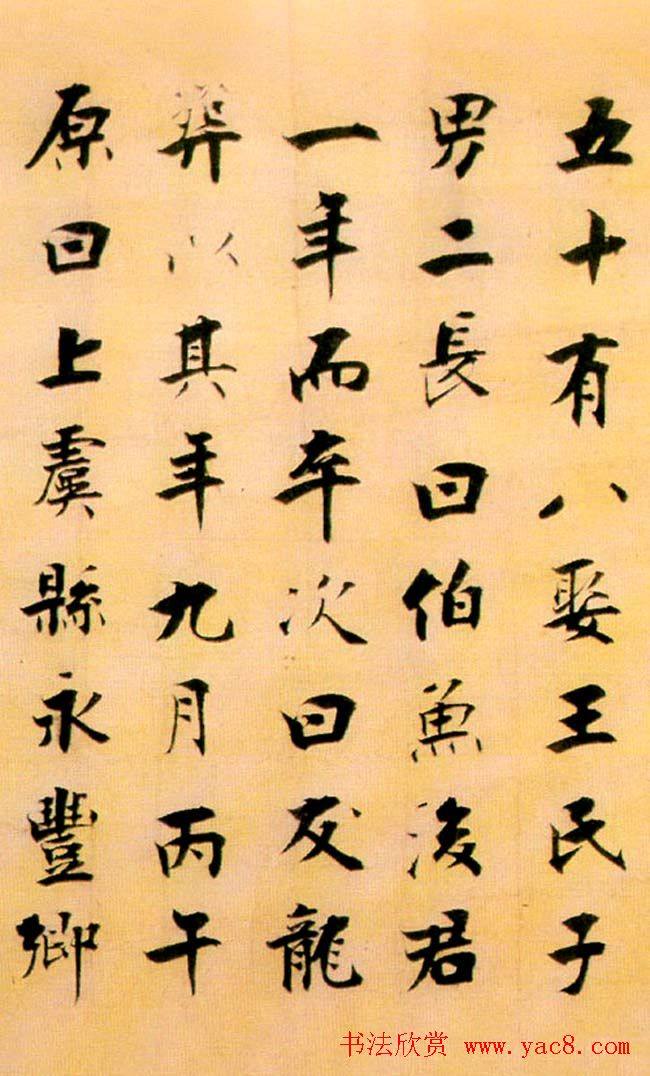 五十有八娶王氏子
男二長曰伯魚後君
一年而卒次曰友龍
葬以其年九月丙午
原曰上虞縣永豐鄉
书法欣赏 www.yac8.com